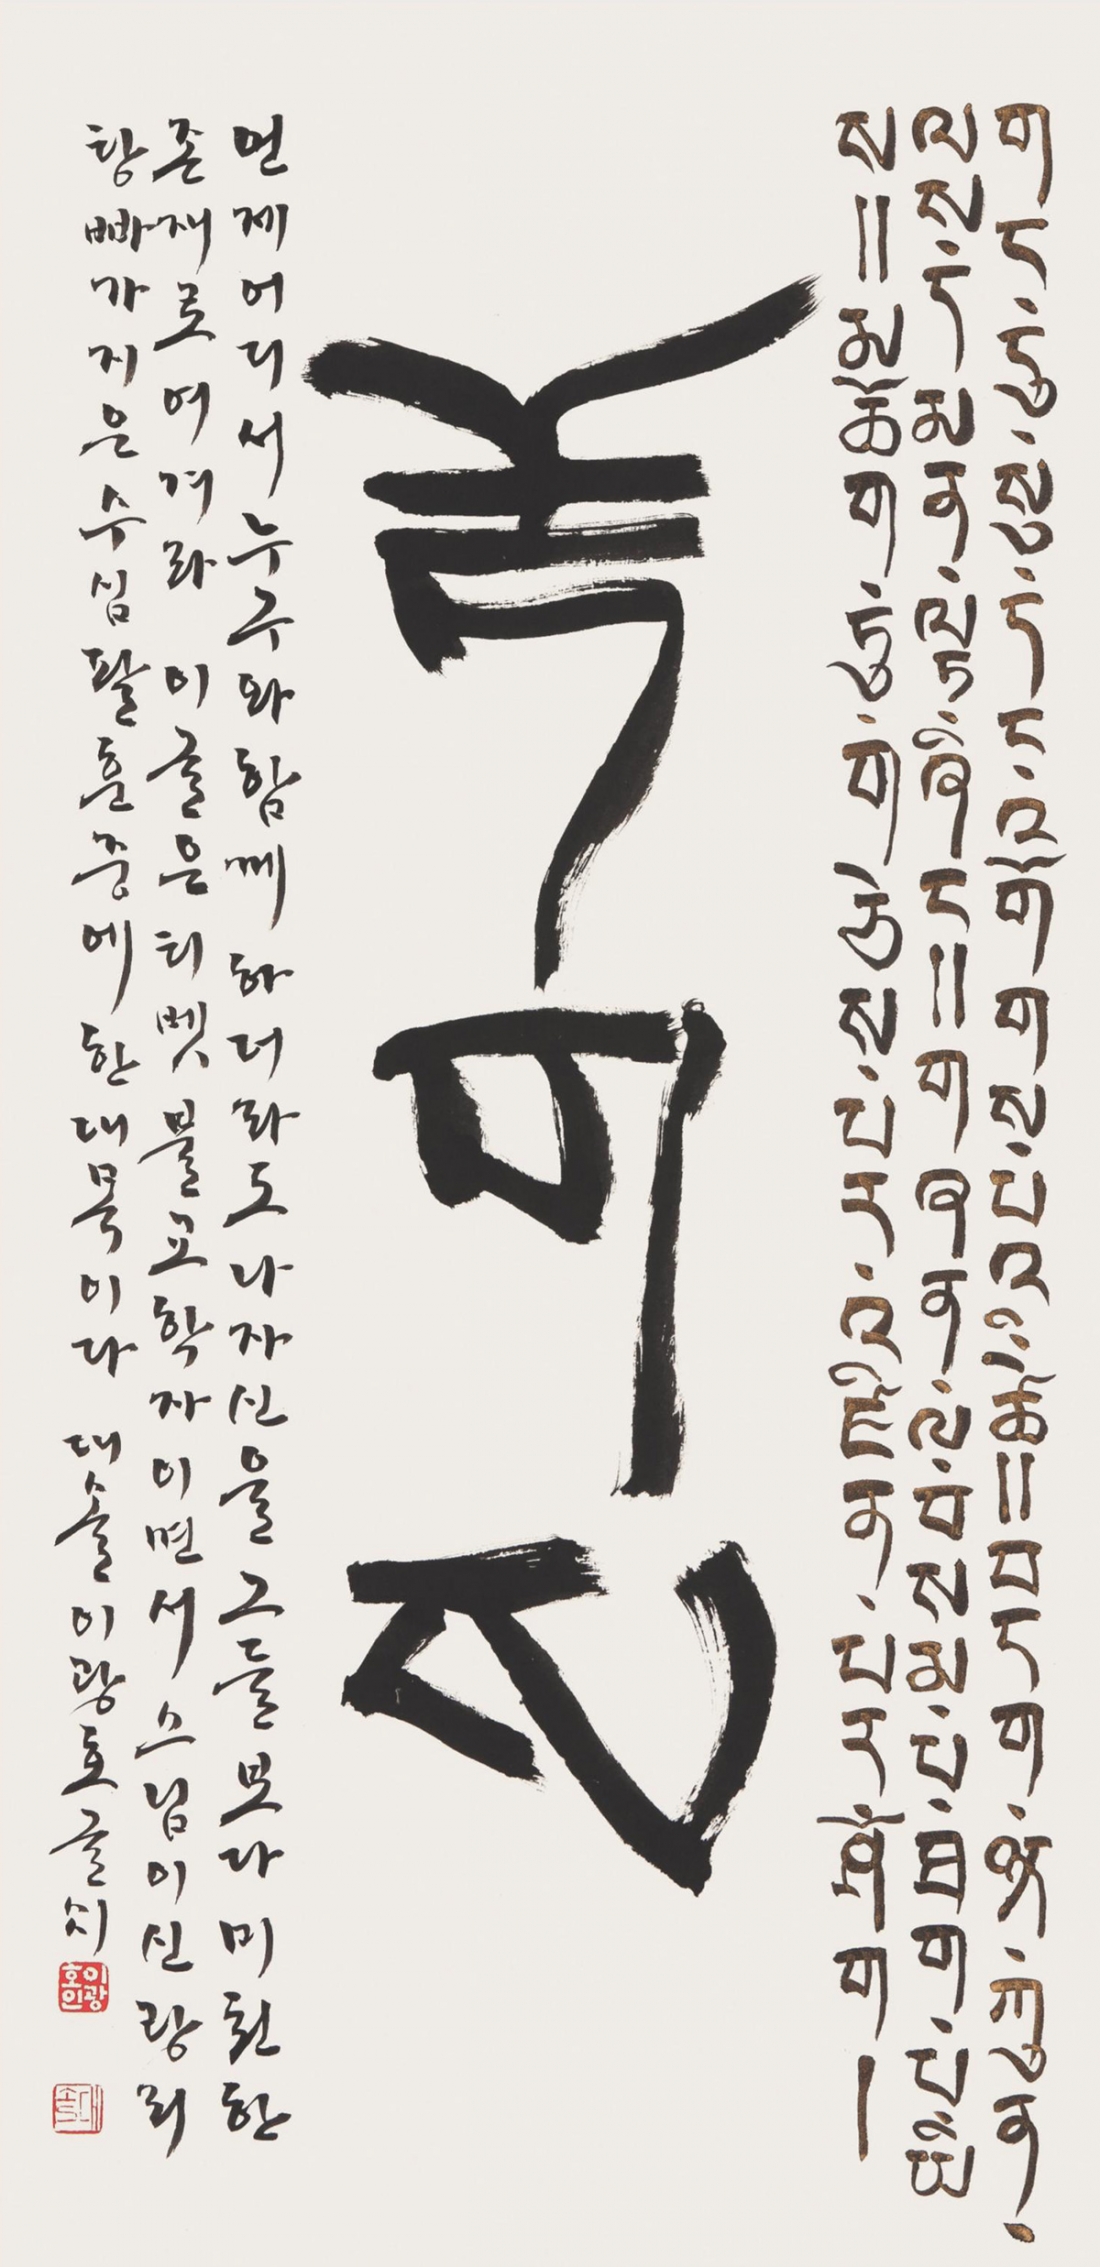 གང་དུ་སུ་དང་འགོགས་པའི་ཚེ།།བདག་ཀུན་
ལས་དམན་ལྟ་ཞིང་།།གཞན་ལ་བསམ་པ་ཐག་པ་ཡི
ས།།མཆོག་ཏུ་གཅེས་པར་འཛིན་པར་ཤོག།
언제 어디서 누구와 함께 하더라도 나 자신을 그들보다 미천한
존재로 여겨라 이 글은 티벳 불교학자이면서 스님이신 랑리
탕빠가 지은 수심팔훈 중에 한 대목이다 대솔 이광호 글시
이광호인
대솔